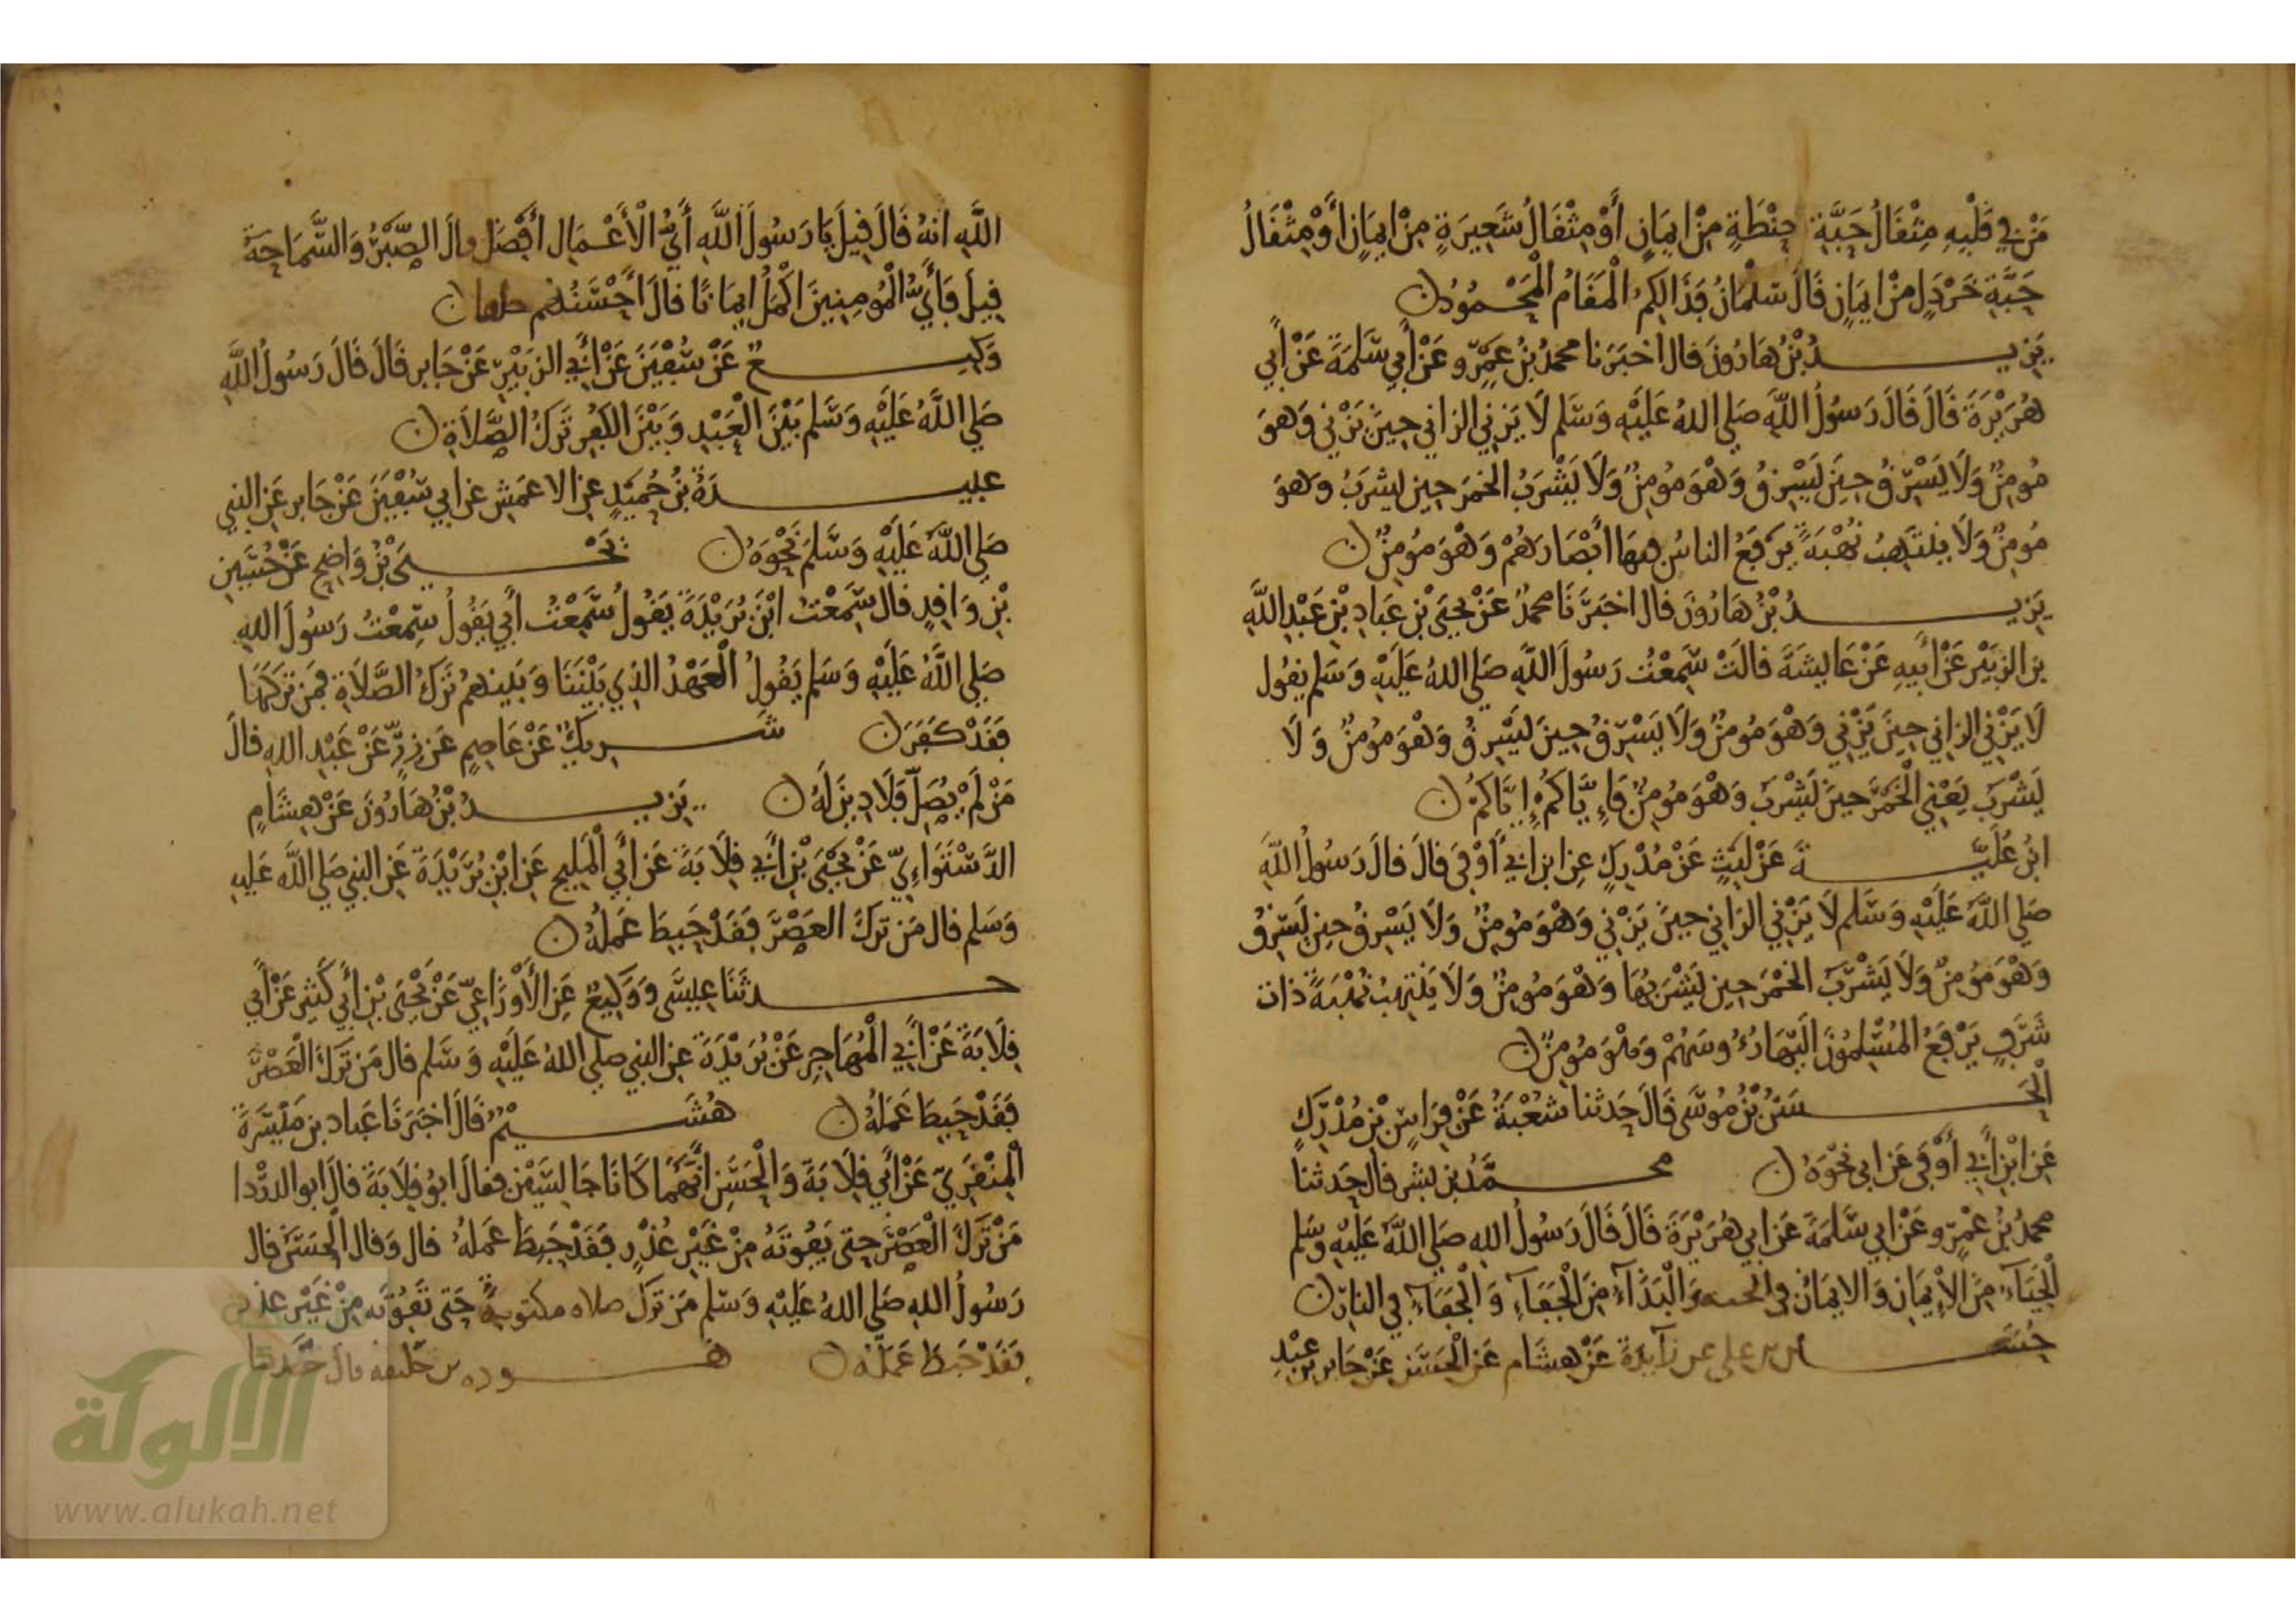 مَنْ فِي قَلْبِهِ مِثْقَالُ حَبَّةِ حِنْطَةٍ مِنْ ايمَانٍ أَوْ مِثْقَالُ شَعِيرَةٍ مِنْ ايمَانٍ أَوْ مِثْقَالُ
حَبَّةِ خَرْدَلٍ مِنْ ايمَانٍ قَالَ سَلْمَانُ فَذَالِكُمُ الْمَقَامُ الْمَحْمُودُ
يَزِيدُ بْنُ هَارُونَ قال اخبَرَنا محمدُ بْنُ عَمْرٍو عَنْ أَبِي سَلَمَةَ عَنْ أَبِي
هُرَيْرَةَ قَالَ قَالَ رَسُولُ اللَّهِ صَلى اللهُ عَلَيْهِ وَسَلم لَا يَزنِي الزاني حِينَ يَزْنِي وَهوَ
مُومِنٌ وَلَا يَسْرِقُ حِينَ يَسْرِقُ وَهْوَ مُومِنٌ وَلَا يَشْرَبُ الخمَرَ حِين يشرَبُ وهوَ
مُومِنٌ وَلَا ينتَهِبُ نُهْبَةً يَرفَعُ الناسُ فيهَا أبْصَارَهُمْ وَهْوَ مُومِنٌ
يَزِيدُ بْنُ هَارُونَ قال اخبَرَنَا محمدٌ عَنْ يحيَى بْنِ عَبَادِ بْنِ عَبْدِ اللَّهِ
بن الزبَيْرِ عَنْ أَبِيهِ عَنْ عَايشَةَ قالَتْ سَمِعْتُ رَسُولَ اللَّهِ صَلى اللهُ عَلَيْهِ وَسَلم يقُول
لَا يَزْنِي الزاني حِينَ يَزْنِي وَهْوَ مُومِنٌ وَلَا يَسْرِقُ حِينَ يَسْرِقُ وَهْوَ مُومِنٌ وَلَا
يَشْرَبُ يَعْنِي الْخَمَرَ حِينَ يَشْرَبُ وَهْوَ مُومِنٌ فَإِيَّاكُمْ إِيَّاكُمْ
ابْنُ عُلَيَّةَ عَنْ لَيْثٍ عَنْ مُدْرِكٍ عنِ ابن ابي أَوْفَى قالَ قالَ رَسُولُ اللَّهِ
صَلى اللَّهُ عَلَيْهِ وَسَلم لَا يَزْنِي الزَاني حِينَ يَزْنِي وَهْوَ مُومِنٌ وَلَا يَسْرِقُ حِين يَسْرِقُ
وَهْوَ مُومِنٌ وَلَا يَشْرَبُ الخمْرَ حِين يَشْرَبُهَا وَهْوَ مُومِنٌ وَلَا يَنْتَهِبُ نُهْبَةً ذات
شَرَفٍ يَرْفَعُ المُسْلِمُونَ الَيْهَا رُءُوسَهُمْ وَهْوَ مُومِنٌ
الْحَسَنُ بْنُ مُوسَى قَالَ حَدثنا شُعْبَةُ عَنْ فِرَاسٍ بْنِ مُدْرِكٍ
عَن ابْنِ أَبِي أَوْفَى عَن ابي نَحْوَهُ محمَّدُ بن بشر قال حَدثنا
محمدُ بْنُ عَمْرٍو عَنْ ابي سَلمَةَ عَن ابي هُرَيْرَةَ قَالَ قَالَ رَسُولُ اللهِ صَلى اللَّهُ عَلَيْهِ وسَلم
الْحَيَاءُ مِنَ الْإِيمَانِ وَالايمَانُ في الجنة وَالْبَذَآءُ مِنَ الْجَفَاءِ وَالْجَفَآءُ فِي النارِ
حُسَيْنُ بن علي عن زآيدَةَ عَنْ هِشَام عَنِ الْحَسَنِ عَنْ جَابر بْنِ عَبْدِ
اللَّهِ انهُ قَالَ قِيلَ يَا رَسُولَ اللَّهِ أَيُّ الْأَعْمَالِ أَفْضَلُ قالَ الصَّبْرُ وَالسَّمَاحَةُ
قِيلَ فَأَيُّ الْمُومِنِينَ اكْمَلُ ايمَانًا قالَ أَحْسَنُهُم خلقا
وَكِيعٌ عَنْ سُفْيَنَ عَنْ أَبِي الزبَيْرِ عَنْ جَابر قَالَ قَالَ رَسُولُ اللَّهِ
صَلى اللَّهُ عَلَيْهِ وَسَلم بَيْنَ الْعَبْدِ وَبَيْنَ الكفْرِ تَرْكُ الصَّلَاةِ
عبيدَةُ بْنُ حُمَيْدٍ عنِ الاعمَشِ عن ابي سُفْيَنَ عَنْ جَابر عَنِ النبي
صَلى اللَّهُ عَلَيْهِ وَسَلمَ نَحْوَهُ يَحْيَى بْنُ وَاضِحٍ عَنْ حُسَيْنِ
بْنِ وَاقِدٍ قال سَمِعْتُ ابْنَ بُرَيْدَةَ يَقُولُ سَمِعْتُ أَبِي يَقُولُ سَمِعْتُ رَسُولَ اللهِ
صَلى اللَّهُ عَلَيْهِ وَسَلم يَقُولُ الْعَهْدُ الذي بَيْنَنَا وَبَيْنهُمْ تَرْكُ الصَّلَاةِ فمَن تَرَكَهَا
فَقَدْ كَفَرَ شَرِيكٌ عَنْ عَاصِمٍ عَن زِرٍّ عَنْ عَبْدِ اللهِ قالَ
مَنْ لَمْ يُصَلِّ فَلَا دِينَ لَهُ يَزِيدُ بْنُ هَارُونَ عَنْ هِشَامٍ
الدَّسْتَوَاءِيِّ عَنْ يَحْيَى بْنِ أَبِي قِلَابَةَ عَن أَبِي الْمَلِيحِ عَن ابْنِ بُرَيْدَةَ عَنِ النبي صَلى اللَّهُ عَلَيهِ
وَسَلم قال مَن تَرَكَ العَصْرَ فَقَدْ حَبِطَ عَمَلُهُ
حدثَنَا عِيسَى وَوَكِيعٌ عَنِ الأَوْزَاعِيِّ عَنْ يَحْيَى بْنِ أَبِي كَثِيرٍ عَنْ أَبِي
قِلَابَةَ عَنْ أَبِي الْمُهَاجِرِ عَنْ بُرَيْدَةَ عن النبي صلى اللهُ عَلَيْهِ وَسَلم قال مَن تَرَكَ الْعَصْرَ
فَقَدْ حَبِطَ عَمَلُهُ هُشَيْمٌ قَالَ اخبَرَنَا عَباد بن مَيْسَرَةَ
الْمِنْقَرِيُّ عَنْ أَبِي قِلَابَةَ وَالْحَسَنِ انَّهُمَا كَانَا جَالِسَيْنِ فقالَ ابُو قِلَابَةَ قالَ ابو الدرْدا
مَنْ تَرَكَ الْعَصْرَ حتى تَفُوتَهُ مِنْ غَيْرِ عُذْرٍ فَقَدْ حَبِطَ عَمَلُهُ قال وَقال الْحسَنُ قال
رَسُولُ اللهِ صَلى اللهُ عَلَيْهِ وَسَلم مَن تَرَكَ صلاه مكتوبةً حَتى تَفُوتَه مِنْ غَيْرِ عذر
فَقَدْ حَبِطَ عَمَلُهُ هوده بن خليفة قال حَدثنا
الألوكة
www.alukah.net